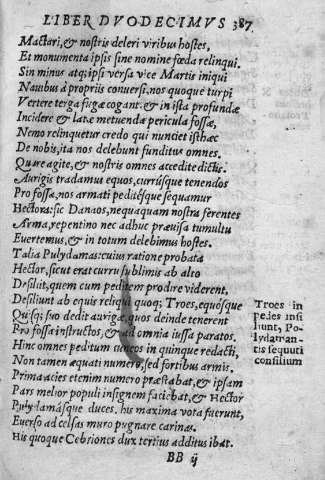 LIBER DVODECIMVS 387
Mactari, & nostris deleri viribus hostes,
Et monumenta ipsis sine nomine fœda relinqui.
Sin minus atq; ipsi versa vice Martis iniqui
Nauibus à propriis conuersi, nos quoque turpi
Vertere terga fugæ cogant: & in ista profundæ
Incidere & latæ metuenda pericula fossæ,
Nemo relinquetur credo qui nunciet isthæc
De nobis, ita nos delebunt funditus omnes.
Quare agite, & nostris omnes accedite dictis.
Aurigis tradamus equos, currúsque tenendos
Pro fossa, nos armati peditésque sequamur
Hectora: sic Danaos, nequaquam nostra ferentes
Arma, repentino nec adhuc præuisa tumultu
Euertemus, & in totum delebimus hostes.
Talia Pulydamas: cuius ratione probata
Hector, sicut erat curru sublimis ab alto
Desiluit, quem cum peditem prodire viderent.
Desiliunt ab equis reliqui quoq; Troes, equósque
Quisq; suo dedit aurigæ, quos deinde tenerent
Pro fossa instructos, & ad omnia iussa paratos.
Hinc omnes peditum cuneos in quinque redacti,
Non tamen æquati numero, sed fortibus armis.
Prima acies etenim numero præstabat, & ipsam
Pars melior populi insignem faciebat, & Hector
Pulydamásque duces. his maxima vota fuerunt,
Euerso ad celsas muro pugnare carinas.
His quoque Cebriones dux tertius additus ibat.
BB ij
Troes in
pedes insi
liunt, Po-
lydaman-
tis sequuti
consilium